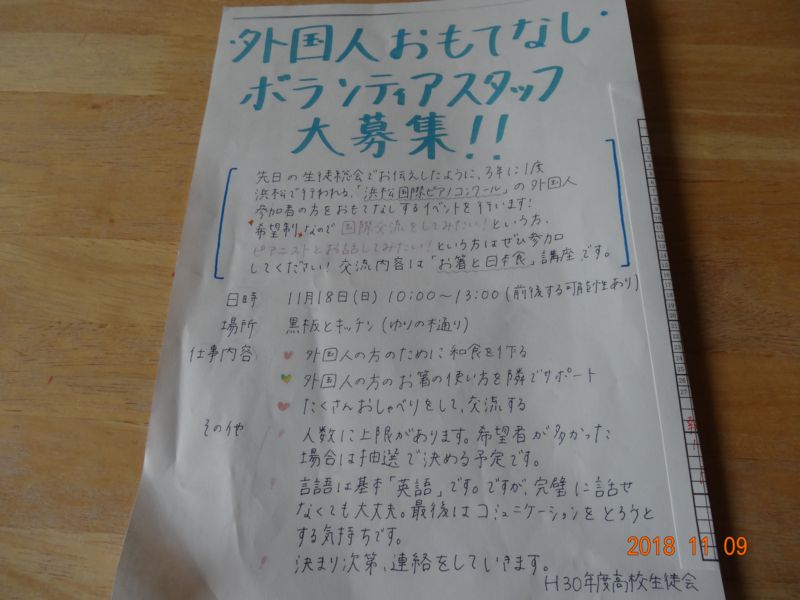 外国人おもてなし
ボランティアスタッフ
大募集!!
先日の生徒総会でお伝えしたように、3年に1度
浜松で行われる、「浜松国際ピアノコンクール」の外国人
参加者の方をおもてなしするイベントを行います!
"希望制"なので国際交流をしてみたい!という方、
ピアニストとお話してみたい!という方はぜひ参加
してください! 交流内容は「お箸と日本食」講座です。
日時 11月18日(日) 10:00~13:00 (前後する可能性あり)
場所 黒板とキッチン (ゆりの木通り)
仕事内容 ♥ 外国人の方のために和食を作る
♥ 外国人の方のお箸の使い方を隣でサポート
♥ たくさんおしゃべりをして、交流する
その他 人数に上限があります。希望者が多かった
場合は抽選で決める予定です。
言語は基本「英語」です。ですが、完璧に話せ
なくても大丈夫。最後はコミュニケーションをとろうと
する気持ちです。
決まり次第、連絡をしていきます。
H30年度高校生徒会
2018 11 09